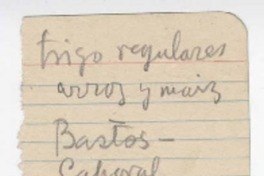 trigo regulares
arroz y maiz
Bastos-
Cahoral